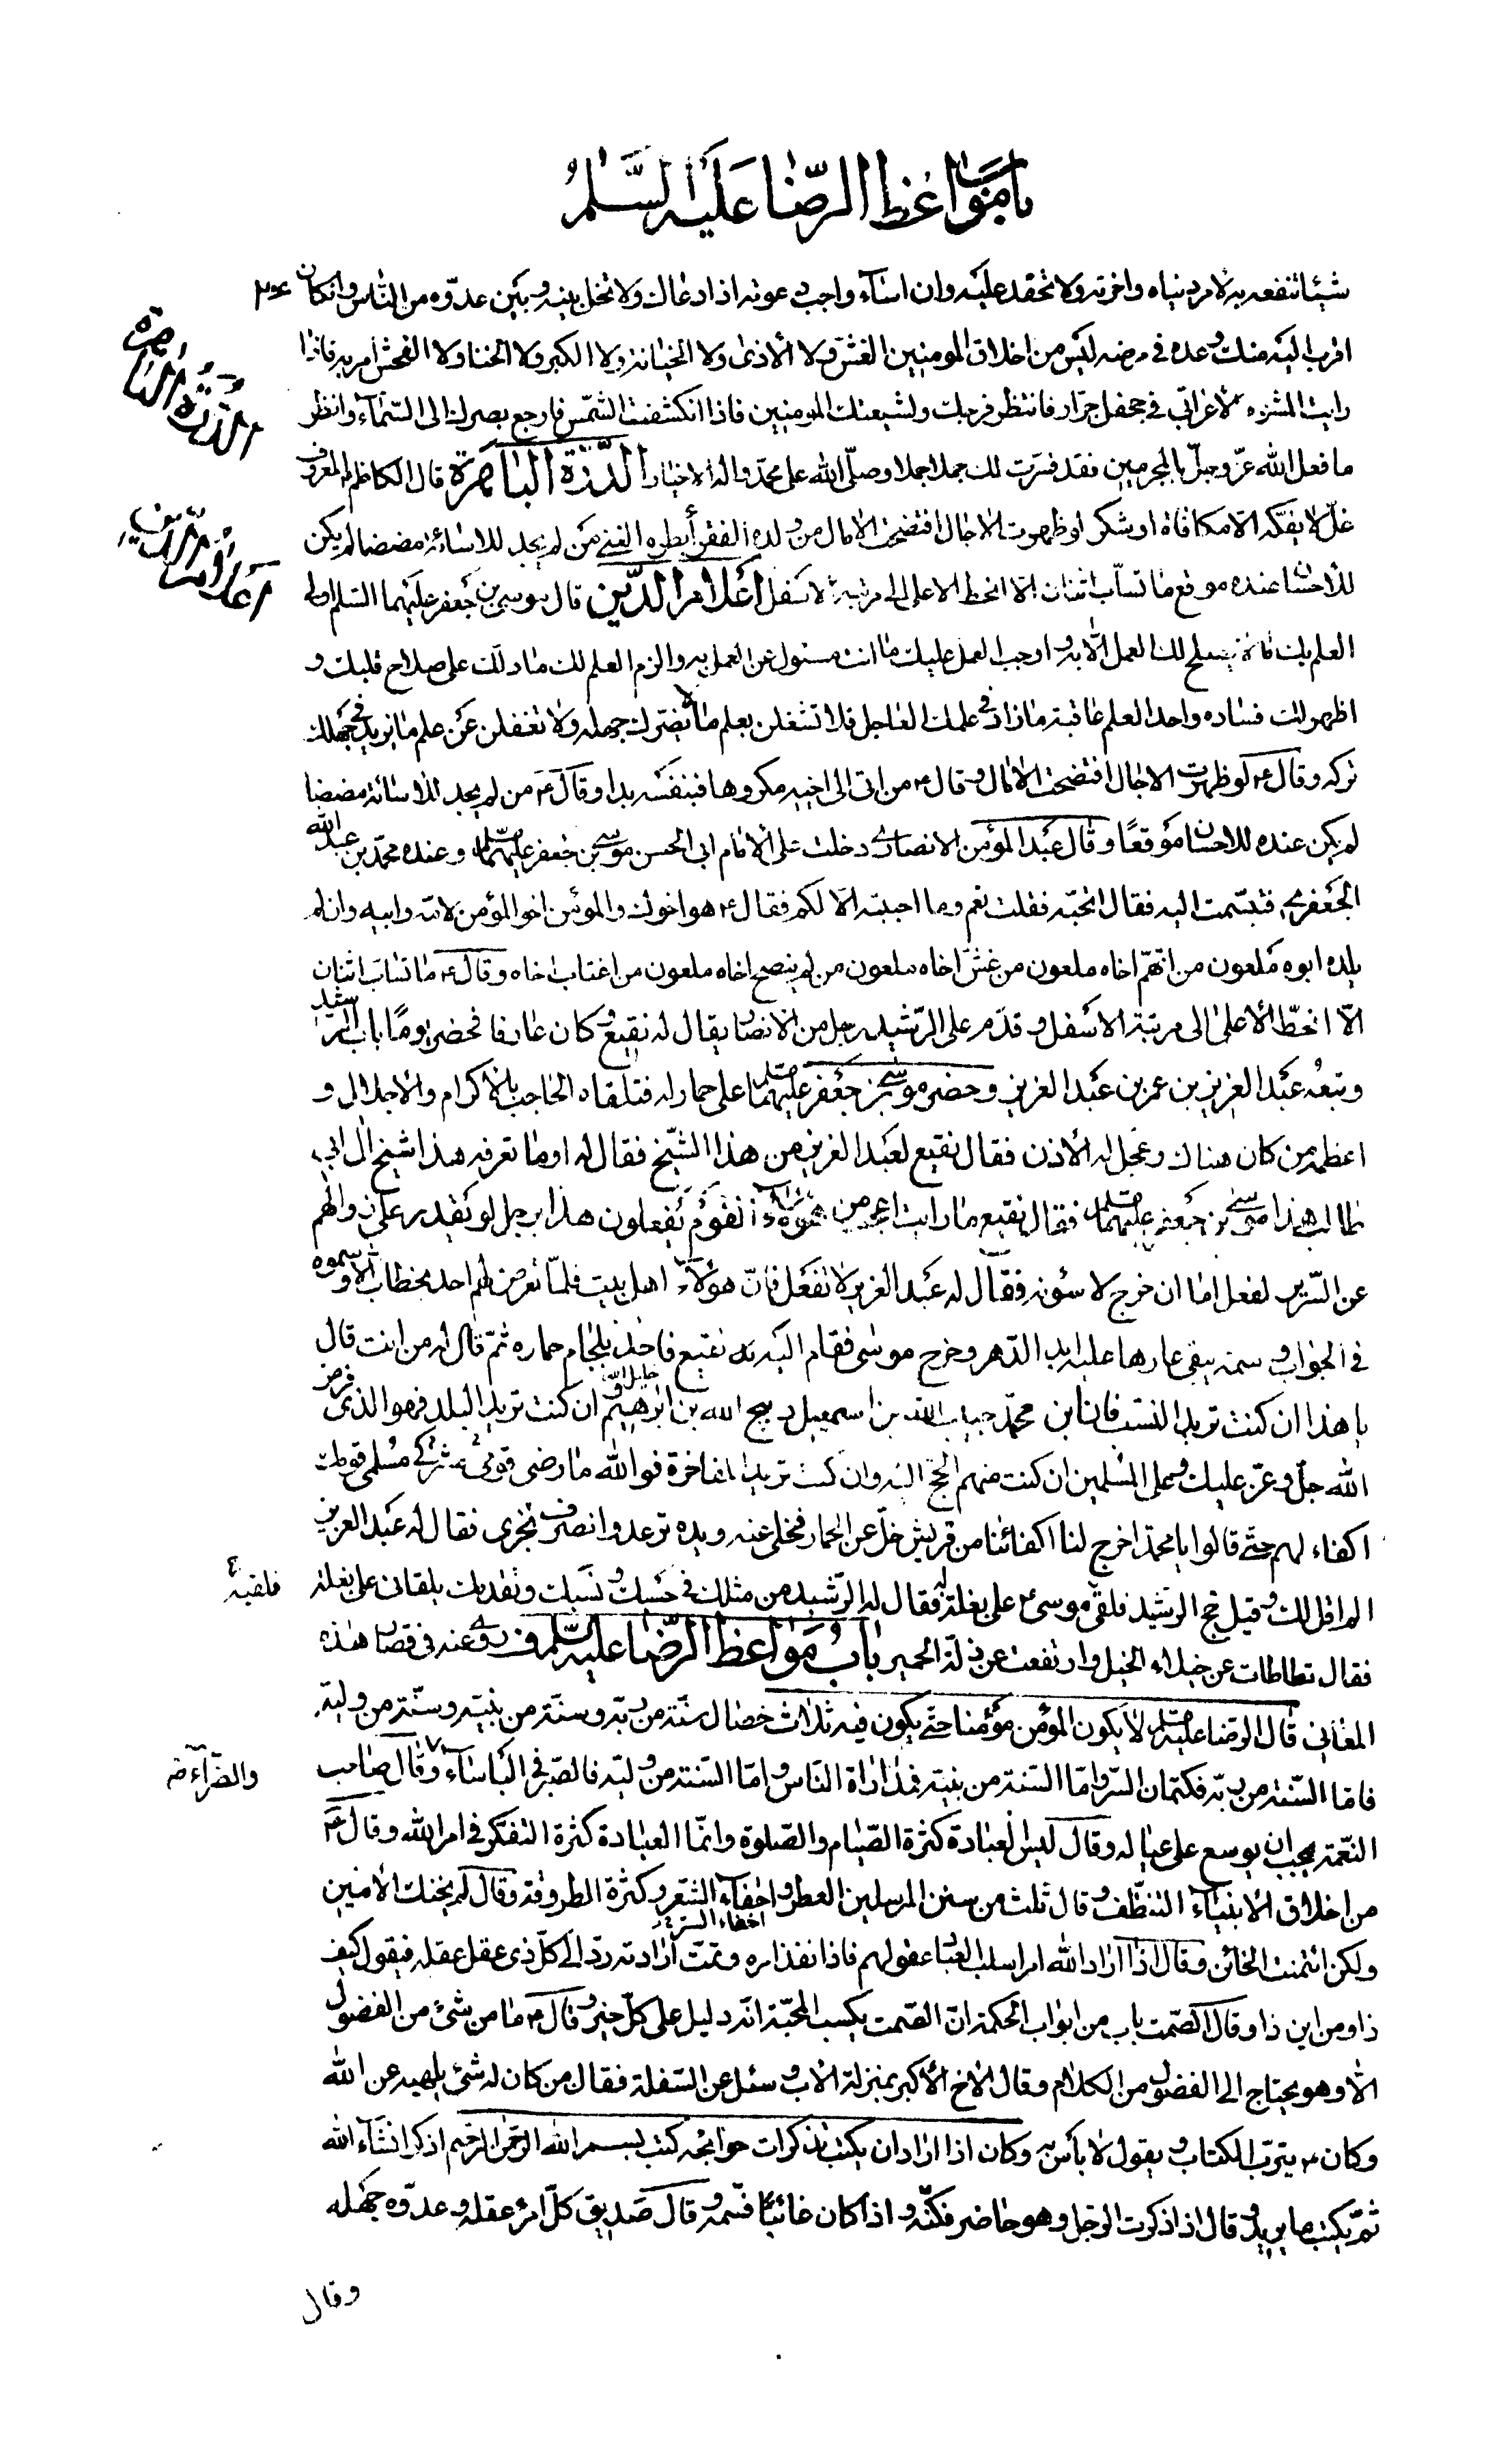 باب مواعظ الرضا عليه السلم
شيئا تنفعه به لامر دنياه واخرته ولا تحقد عليه وان اساء واجب دعوته اذا دعاك ولا تخل بينه وبين عدوه من الناس وان كان
اقرب اليه منك وعده في مرضه ليس من اخلاق المومنين الغش ولا الاذى ولا الخيانة ولا الكبر ولا الخنا ولا الفحش امر به فاذا
رايت المشوه الاعرابي في جحفل جرار فانتظر فرجك ولشيعتك المومنين فاذا انكشفت الشمس فارجع بصرك الى السماء وانظر
الدرة الباهرة
ما فعل الله عز وجل بالمجرمين فقد فسرت لك جملا جملا وصلى الله على محمد واله الاخيار الدرة الباهرة قال الكاظم المعروف
غل لا يفكه الا مكافاة او شكر لو ظهرت الاجال افتضحت الامال من ولده الفقر أبطره الغنى من لم يجد للاساءة مضضا لم يكن
اعلام الدين
للاحسان عنده موقع ما تساب اثنان الا انحط الاعلى الى مرتبة الاسفل اعلام الدين قال موسى بن جعفر عليهما السلم اولى
العلم بك ما لا يصلح لك العمل الا به واوجب العمل عليك ما انت مسئول عن العمل به والزم العلم لك ما دلك على صلاح قلبك و
اظهر لك فساده واحمد العلم عاقبة ما زاد في علمك العاجل فلا تشغلن بعلم ما لا يضرك جهله ولا تغفلن عن علم ما يزيد في جهلك
تركه وقال ع لو ظهرت الاجال افتضحت الامال وقال ع من اتى الى اخيه مكروها فبنفسه بدا وقال ع من لم يجد للاسائة مضضا
لم يكن عنده للاحسان موقعا وقال عبد المؤمن الانصاري دخلت على الامام ابي الحسن موسى بن جعفر عليهما السلم وعنده محمد بن عبد الله
الجعفري فتبسمت اليه فقال اتحبه فقلت نعم وما احببته الا لكم فقال ع هو اخوك والمومن اخو المؤمن لامه وابيه وان لم
يلده ابوه ملعون من اتهم اخاه ملعون من غش اخاه ملعون من لم ينصح اخاه ملعون من اغتاب اخاه وقال ع ما تساب اثنان
الا انحط الاعلى الى مرتبة الاسفل وقدم على الرشيد رجل من الانصار يقال له نفيع وكان عارفا فحضر يوما باب الرشيد
وتبعه عبد العزيز بن عمر بن عبد العزيز وحضر موسى بن جعفر عليهما السلم على حمار له فتلقاه الحاجب بالاكرام والاجلال و
اعظمه من كان هناك وعجل له الاذن فقال نفيع لعبد العزيز من هذا الشيخ فقال له اوما تعرفه هذا شيخ ال ابي
طالب هذا موسى بن جعفر عليهما السلم فقال نفيع ما رايت اعجز من هؤلاء القوم يفعلون هذا برجل لو يقدر على زوالهم
عن السرير لفعل اما ان خرج لاسؤنه فقال له عبد العزيز لا تفعل فان هؤلاء اهل بيت قلما تعرض لهم احد بخطاب الا وسموه
في الجواب وسمة يبقى عارها عليه ابد الدهر وخرج موسى فقام اليه نفيع فاخذ بلجام حماره ثم قال له من انت قال
يا هذا ان كنت تريد النسب فانا ابن محمد حبيب الله بن اسمعيل ذبيح الله بن ابرهيم خليل الله وان كنت تريد البلد فهو الذي فرض
الله جل وعز عليك وعلى المسلمين ان كنت منهم الحج اليه وان كنت تريد المفاخرة فوالله ما رضى مشركي قومي مسلمي قومك
اكفاء لهم حتى قالوا يا محمد اخرج لنا اكفائنا من قريش خل عن الحمار فخلى عنه ويده ترعد وانصرف بخزي فقال له عبد العزيز
الم اقل لك وقيل حج الرشيد فلقي موسى ع على بغلة له فقال له الرشيد من مثلك في حسبك ونسبك وتقدمك يلقاني على بغلة
فلقيه
فقال تطاطات عن خيلاء الخيل وارتفعت عن ذلة الحمير باب مواعظ الرضا عليه السلم ف روي عنه في قصار هذه
المعاني قال الرضا عليه السلم لا يكون المؤمن مؤمنا حتى يكون فيه ثلاث خصال سنة من ربه وسنة من نبيه وسنة من وليه
فاما السنة من ربه فكتمان السر واما السنة من نبيه فمداراة الناس واما السنة من وليه فالصبر في الباساء وقال صاحب
والضراء
النعمة يجب ان يوسع على عياله وقال ليس العبادة كثرة الصيام والصلوة وانما العبادة كثرة التفكر في امر الله وقال ع
من اخلاق الانبياء التنظف وقال ثلث من سنن المرسلين العطر واحفاء الشعر وكثرة الطروقة وقال لم يخنك الامين
ولكن ائتمنت الخائن وقال اذا اراد الله امرا سلب العباد عقولهم فاذا نفذ امره وتمت ارادته رد الى كل ذي عقل عقله فيقول كيف
ذا ومن اين ذا وقال الصمت باب من ابواب الحكمة ان الصمت يكسب المحبة انه دليل على كل خير وقال ع ما من شئ من الفضول
الا وهو يحتاج الى الفضول من الكلام وقال الاخ الاكبر بمنزلة الاب وسئل عن السفلة فقال من كان له شئ يلهيه عن الله
وكان ع يترب الكتاب ويقول لا بأس به وكان اذا اراد ان يكتب تذكرات حوائجه كتب بسم الله الرحمن الرحيم اذكر انشاء الله
ثم يكتب ما يريد وقال اذا ذكرت الرجل وهو حاضر فكنه واذا كان غائبا فسمه وقال صديق كل امرء عقله وعدوه جهله
وقال